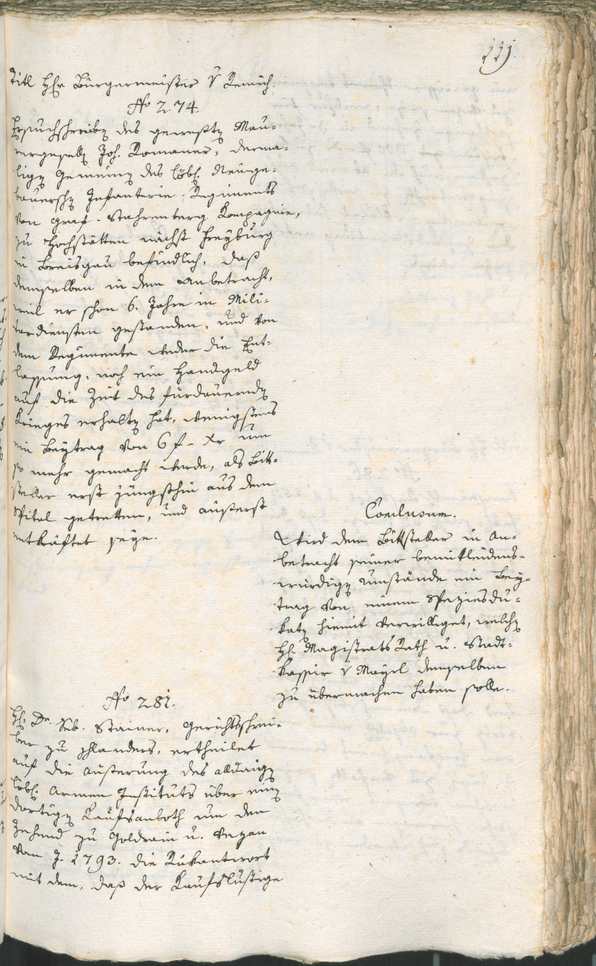 111.
Titl. H: Hr Bürgermeister v Remich.
No 274.
Ersuchschreiben des gewesten Mau-
rergesell Joh. Romaner, derma-
ligen Gemeinen des löbl. Neuge-
bauersch Infanterie: Regiments
von Graf-Stahrenberg Kompagnie,
zu Hochstätten nächst Freyburg
in Breisgau befindlich, daß
demselben in dem Anbetracht,
weil er schon 6. Jahre in Mili-
tardiensten gestanden, und von
dem Regimente weder die Ent-
lassung, noch ein Handgeld
auf die Zeit des fürdauernden
Krieges erhalten hat, wenigstens
ein Beytrag von 6 f - xr um
so mehr gemacht werde, als Bitt-
steller erst jüngsthin aus dem
Spital getretten, und äußerst
entkräftet seye.
Conclusum.
Wird dem Bittsteller in An-
betracht seiner bemitleidens-
würdigen Umstände ein Bey-
trag von einem Speziesdu-
katen hiemit verwilliget, welchen
H: Magistrats Rath u. Stadt-
kassier v Mayrl demselben
zu übermachen haben solle.
No 281.
H: Dr. Seb. Stainer, Gerichtschrei-
ber zu Schlanders, ertheilet
auf die Äußerung des alldaigen
löbl. Armen Instituts über einen
dortigen Kaufsanboth um den
Zehend zu Goldrain u. Vezan
vom J. 1793. die Rükantwort
mit dem, daß der Kaufslustige